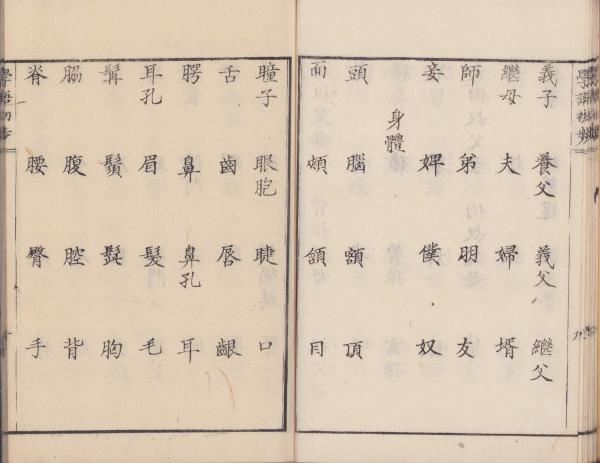 義子 養父 義父 繼父
繼母 夫 婦 壻
師 弟 朋 友
妾 婢 僕 奴
身體
頭 腦 額 頂
面 頰 頷 目
瞳子 眼胞 睫 口
舌 齒 唇 齦
腭 鼻 鼻孔 耳
耳孔 眉 髮 毛
髯 鬚 髭 胸
脇 腹 腔 背
脊 腰 臀 手